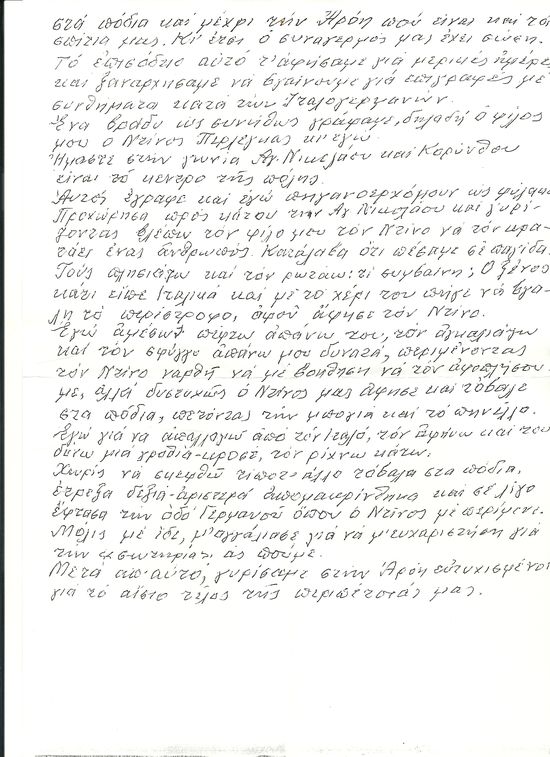 στά πόδια καί μέχρι την Ἀρόη πού εἶναι καί τά
σπίτια μας. Κι' ἔτσι ὁ συναγερμός μας ἔχει σώσει.
Τό ἐπεισόδιο αὐτό τ'ἀφήσαμε γιά μερικές ἡμέρες
καί ξαναρχήσαμε νά βγαίνουμε γιά ἐπιγραφές με
συνθήματα κατά τῶν Ἰταλογερμανῶν.
Ἕνα βράδυ ὡς συνήθως γράφαμε, δηλαδή ὁ φίλος
μου ὁ Ντίνος Περλέγκας κι'ἐγώ.
Ἤμαστε στην γωνία Αγ. Νικολάου καί Κορίνθου
εἶναι τό κέντρο τῆς πόλης.
Αὐτός ἔγραφε καί ἐγώ πηγαινοερχόμουν ὡς φύλακας
Προχώρησα πρός κάτου την Αγ Νικολάου καί γυρί-
ζοντας βλέπω τόν φίλο μου τόν Ντίνο νά τόν κρα-
τάει ἕνας ἄνθρωπος. Κατάλαβα ὅτι πέσαμε σέ παγίδα.
Τούς πλησιάζω καί τόν ρωτάω: τί συμβαίνη; Ὁ ξένος
κάτι εἶπε Ἰταλικά καί μέ τό χέρι του πῆγε νά βγά-
λη τό περίστροφο, ἀφοῦ ἄφησε τόν Ντίνο.
Ἐγώ ἀμέσως πέφτω ἀπάνω του, τόν ἀγκαλιάζω
καί τόν σφίγγω ἀπάνω μου δυνατά, περιμένοντας
τόν Ντίνο ναρθῆ νά μέ βοηθήση νά τόν ἀφοπλήσου-
με, ἀλλά δυστυχῶς ὁ Ντίνος μας ἄφησε καί τὄβαλε
στα πόδια, πετόντας την μπογιά καί τό πηνέλλο.
Ἐγώ γιά να ἀπαλλαγῶ ἀπό τόν Ἰταλό, τόν ἀφήνω καί του
δίνω μιά γροθιά-κροσέ, τόν ρίχνω κάτω.
Χωρίς νά σκεφθῶ τίποτε ἄλλο τὄβαλα στα πόδια,
ἔτρεξα δεξιά-ἀριστερά ἀπομακρίνθηκα καί σέ λίγο
ἔφτασα την ὁδό Γερμανοῦ ὅπου ὁ Ντίνος μέ περίμενε.
Μόλις μέ ἶδε, μ'αγγάλιασε γιά νά μ'ευχαριστήση γιά
την «σωτηρία», ἄς ποῦμε.
Μετά απ'αὐτό, γυρίσαμε στήν Ἀρόη εὐτυχισμένοι
γιά τό αἴσιο τέλος τῆς περιπέτειάς μας.